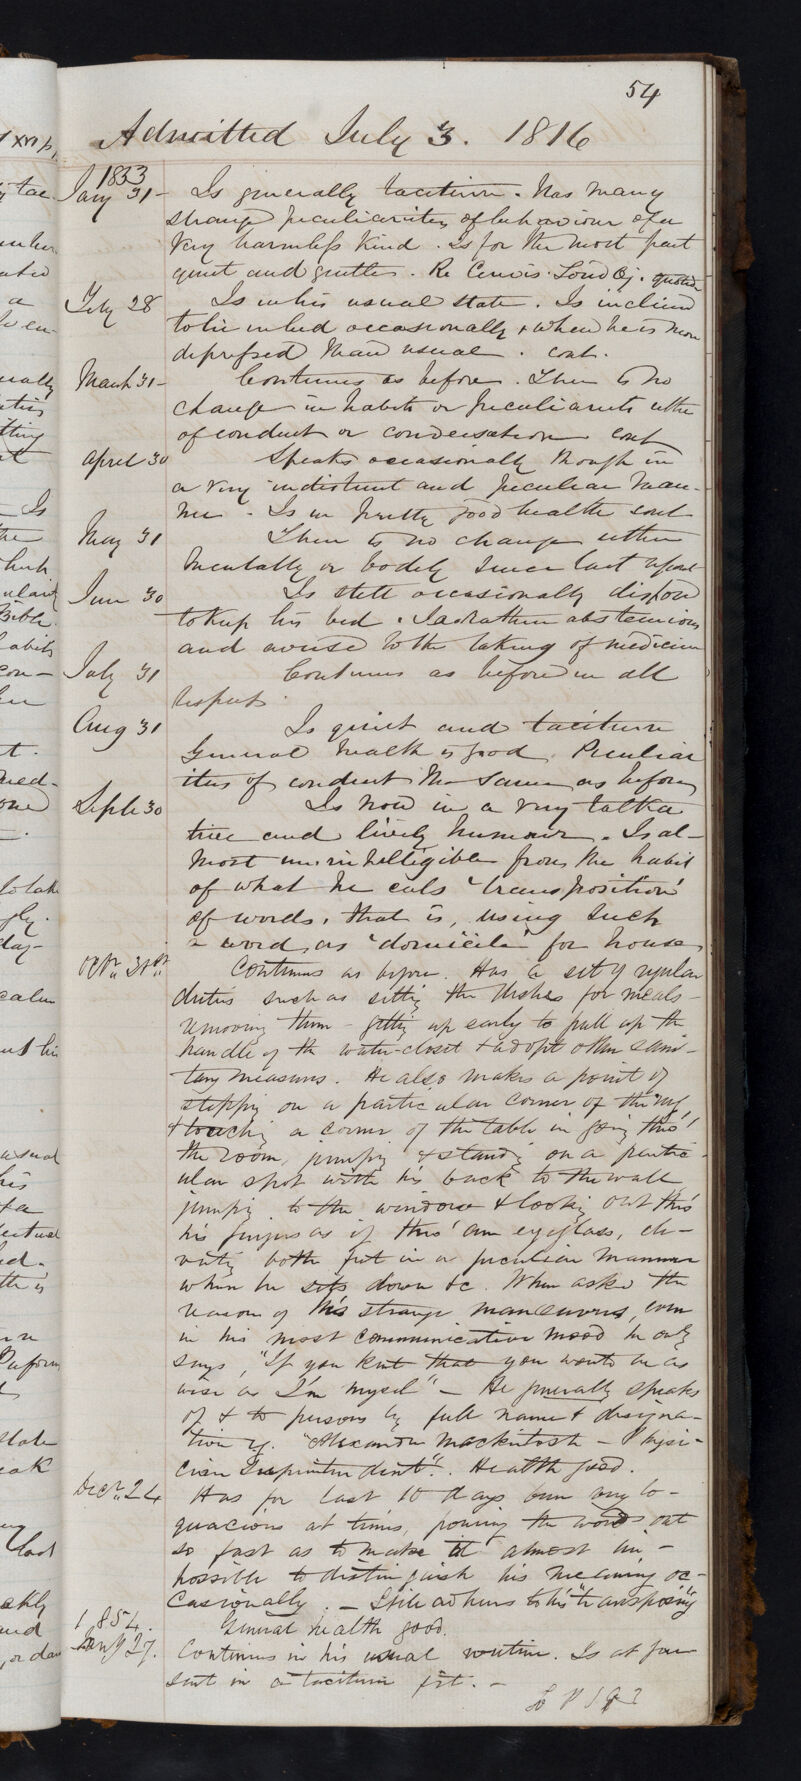 54
Admitted July 3. 1816
1853
Jany 31 - Is generally taciturn. Has many
strange peculiarities of behaviour of a
very harmless kind. Is for the most part
quiet and gentle. Re Cervis: Lond Oj.
Feby 28 Is in his usual state. Is inclined
to lie in bed occasionally & when he is more
depressed than usual. cont.
March 31 - Continues as before. There is no
change in habits or peculiarities either
of conduct or conversation cont
April 30 Speaks occasionally though in
a very indistinct and peculiar man-
ner - Is in pretty good health cont
May 31 There is no change either
mentally or bodily since last report
June 30 Is still occasionally disposed
to keep his bed. Is rather abstemious
and averse to the taking of medicine
July 31 Continues as before in all
respects.
Aug 31 Is quiet and taciturn
General health is good. Peculiar
ities of conduct the same as before
Septr 30 Is now in a very talka
tive and lively humour. Is al-
most unintelligible from the habit
of what he calls "transposition"
of words, that is, using such
a word, as "domicile" for house,
Octr 31st Continues as before. Has a set of regular
duties such as setting the dishes for meals -
removing them - getting up early to pull up the
handle of the water-closet & adopt other sani-
tary measures. He also makes a point of
stepping on a particular corner of the rug,
& touching a corner of the table in going thro'
the room, jumping & standing on a partic-
ular spot with his back to the wall
jumping to the window & looking out thro'
his fingers as if thro' an eyeglass, ele-
vating both feet in a peculiar manner
when he sits down &c. When asked the
reason of this strange manoeuvres, even
in his most communicative mood he only
says, "If you kent that you would be as
wise as I'm mysel" - He generally speaks
of & to persons by full name & designa-
tion eg. "Alexander Mackintosh - Physi-
cian Superintendent". Health good.
Decr 24 Has for last 10 days been very lo-
quacious at times, pouring the words out
so fast as to make it almost im-
possible to distinguish his meaning oc-
casionally. - Still adheres to his "transposing"
General health good.
1854.
Jany 27. Continues in his usual routine. Is at pre
sent in a taciturn fit. -